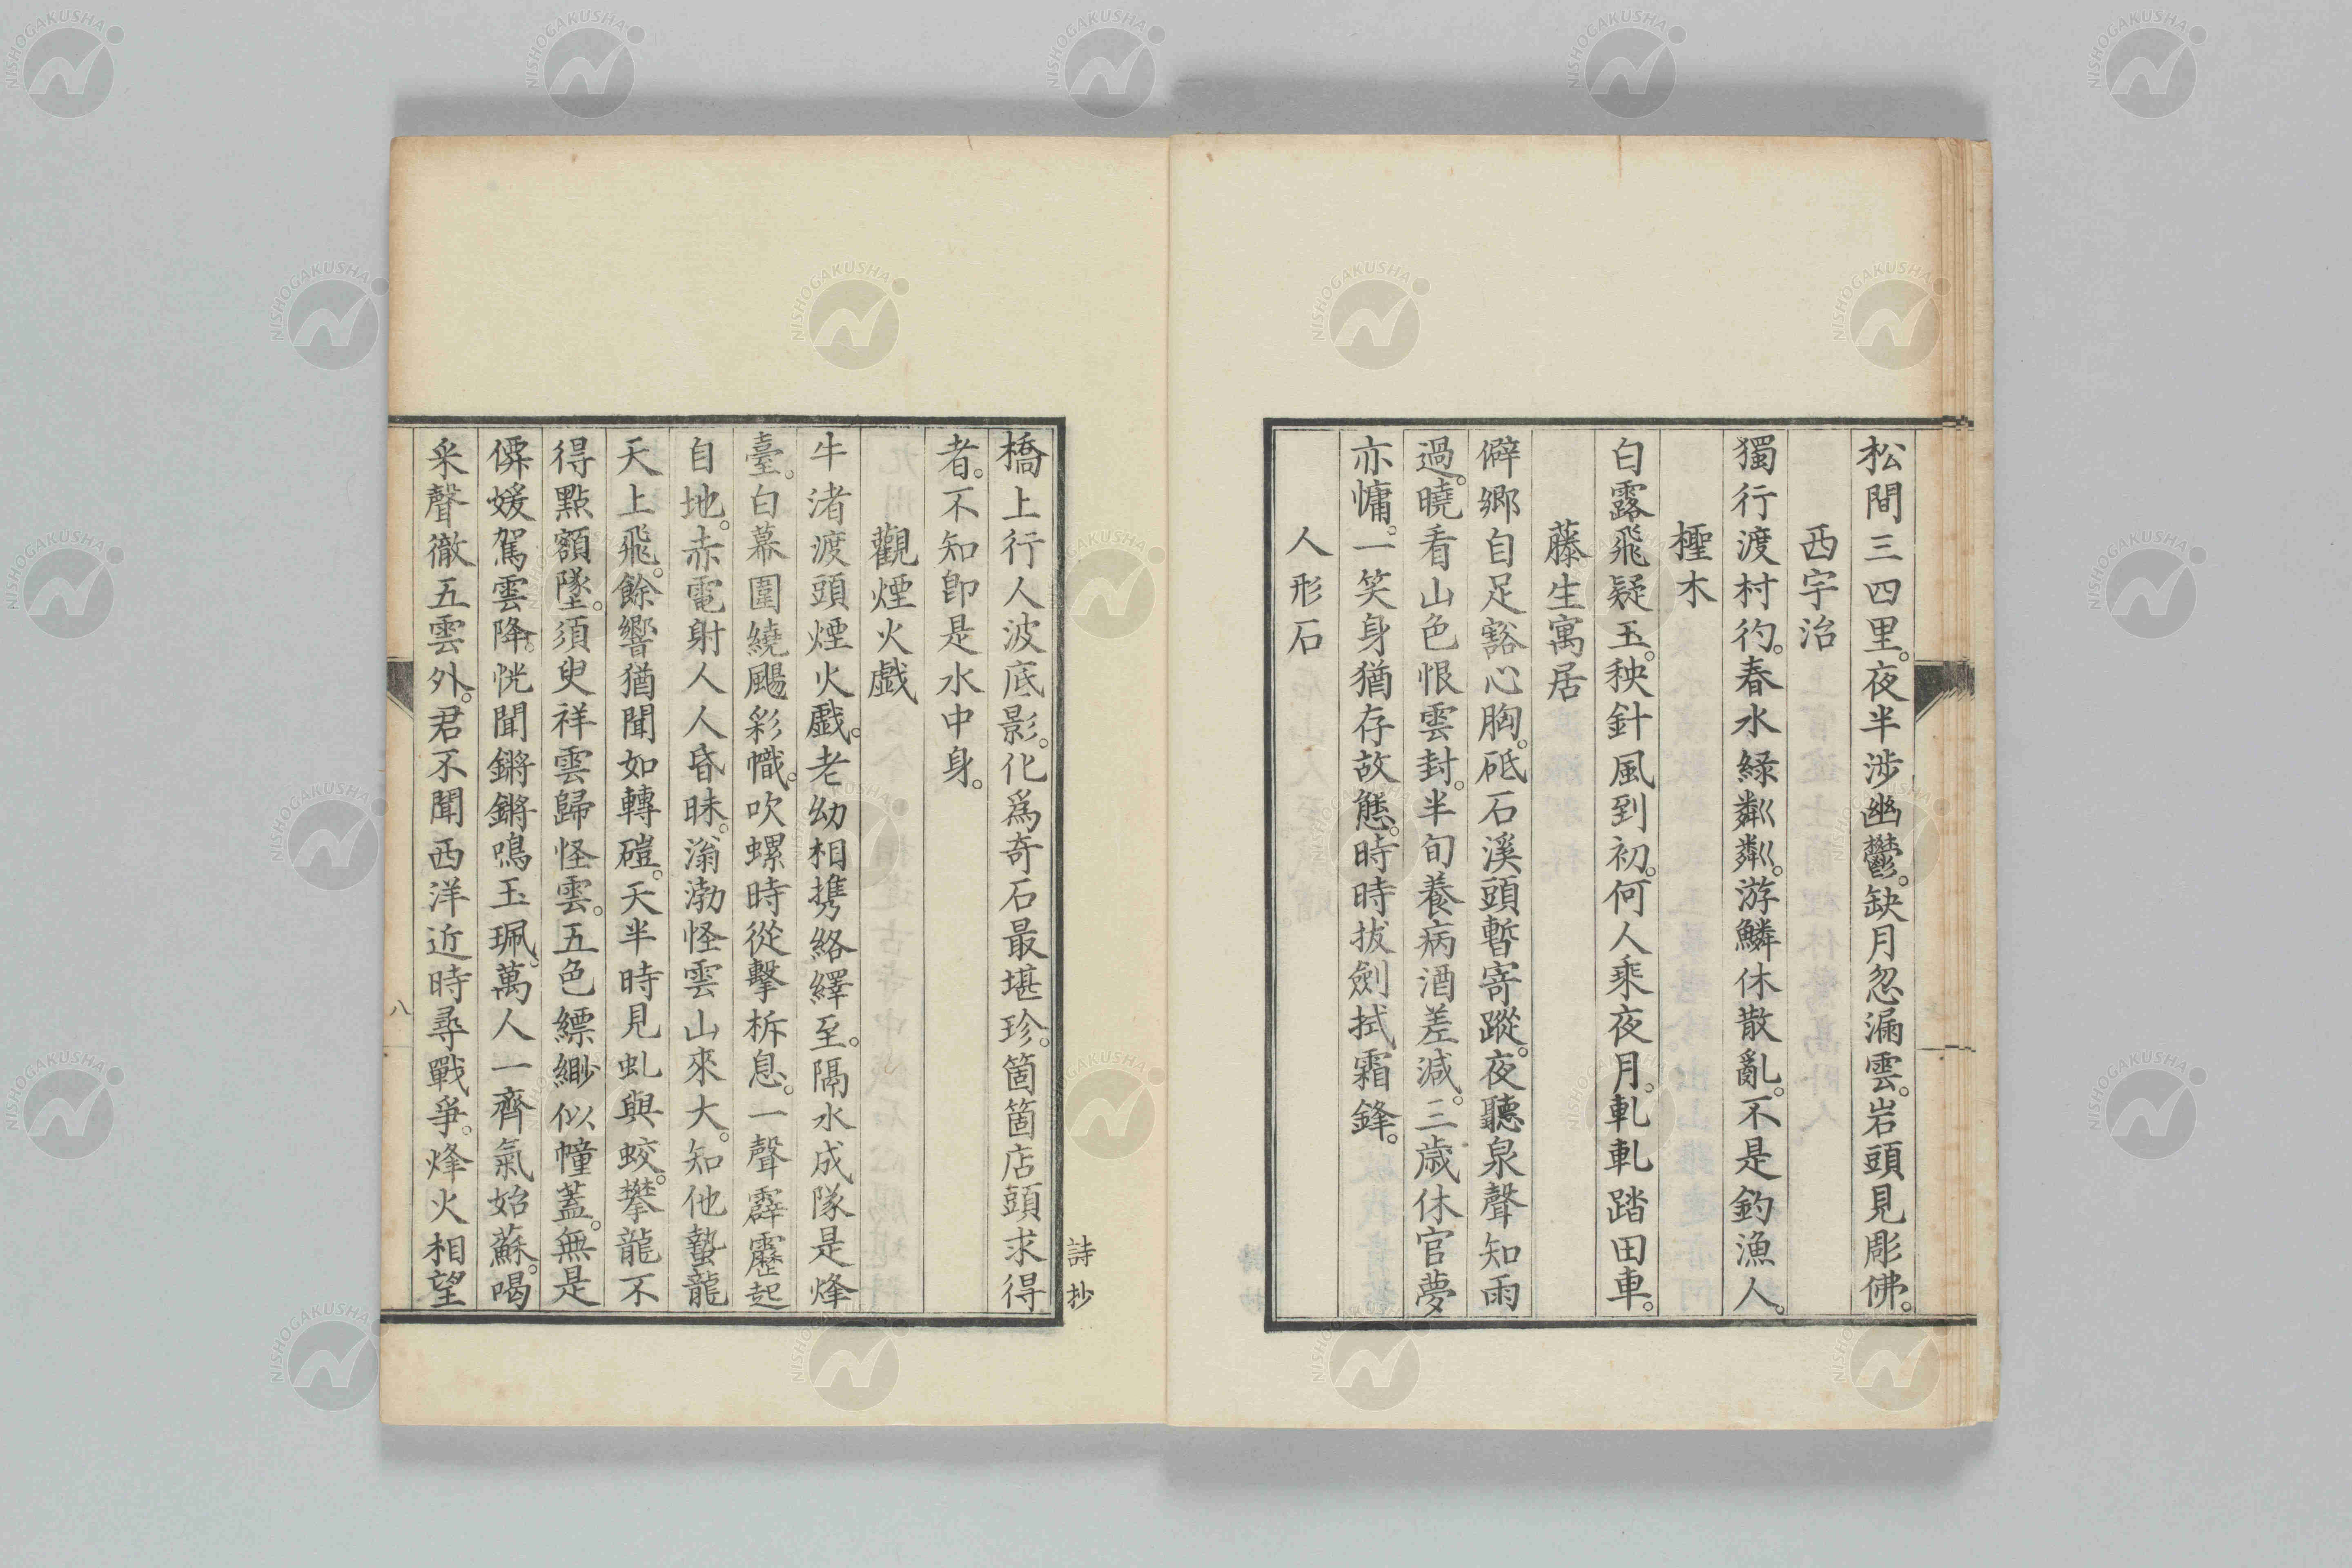 松間三四里。夜半涉幽鬱。缺月忽漏雲。岩頭見彫佛。
西宇治
獨行渡村彴。春水綠粼粼。游鱗休散亂。不是釣漁人。
檉木
白露飛疑玉。秧針風到初。何人乘夜月。軋軋踏田車。
藤生寓居
僻鄉自足豁心胸。砥石溪頭暫寄蹤。夜聽泉聲知雨
過。曉看山色恨雲封。半旬養病酒差減。三歲休官夢
亦慵。一笑身猶存故態。時時拔劍拭霜鋒。
人形石
詩抄
橋上行人波底影。化爲奇石最堪珍。箇箇店頭求得
者。不知卽是水中身。
觀煙火戲
牛渚渡頭煙火戲。老幼相携絡繹至。隔水成隊是烽
臺。白幕圍繞颺彩幟。吹螺時從擊柝息。一聲霹靂起
自地。赤電射人人昏昧。滃渤怪雲山來大。知他蟄龍
天上飛。餘響猶聞如轉磑。天半時見虬與蛟。攀龍不
得點額墜。須臾祥雲歸怪雲。五色縹緲似幢蓋。無是
僊媛駕雲降。恍聞鏘鏘鳴玉珮。萬人一齊氣始蘇。喝
采聲徹五雲外。君不聞西洋近時尋戰爭。烽火相望
八
NISHOGAKUSHA